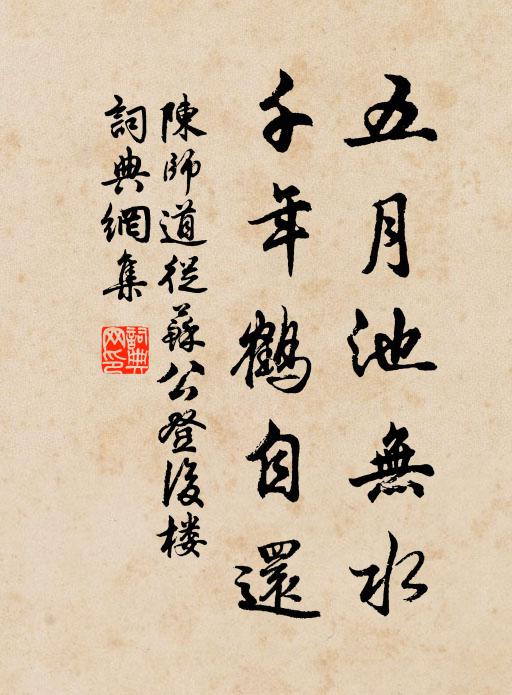 五月池無水
千年鶴自還
陳師道從蘇公登後樓
詞典網集
詞典網印